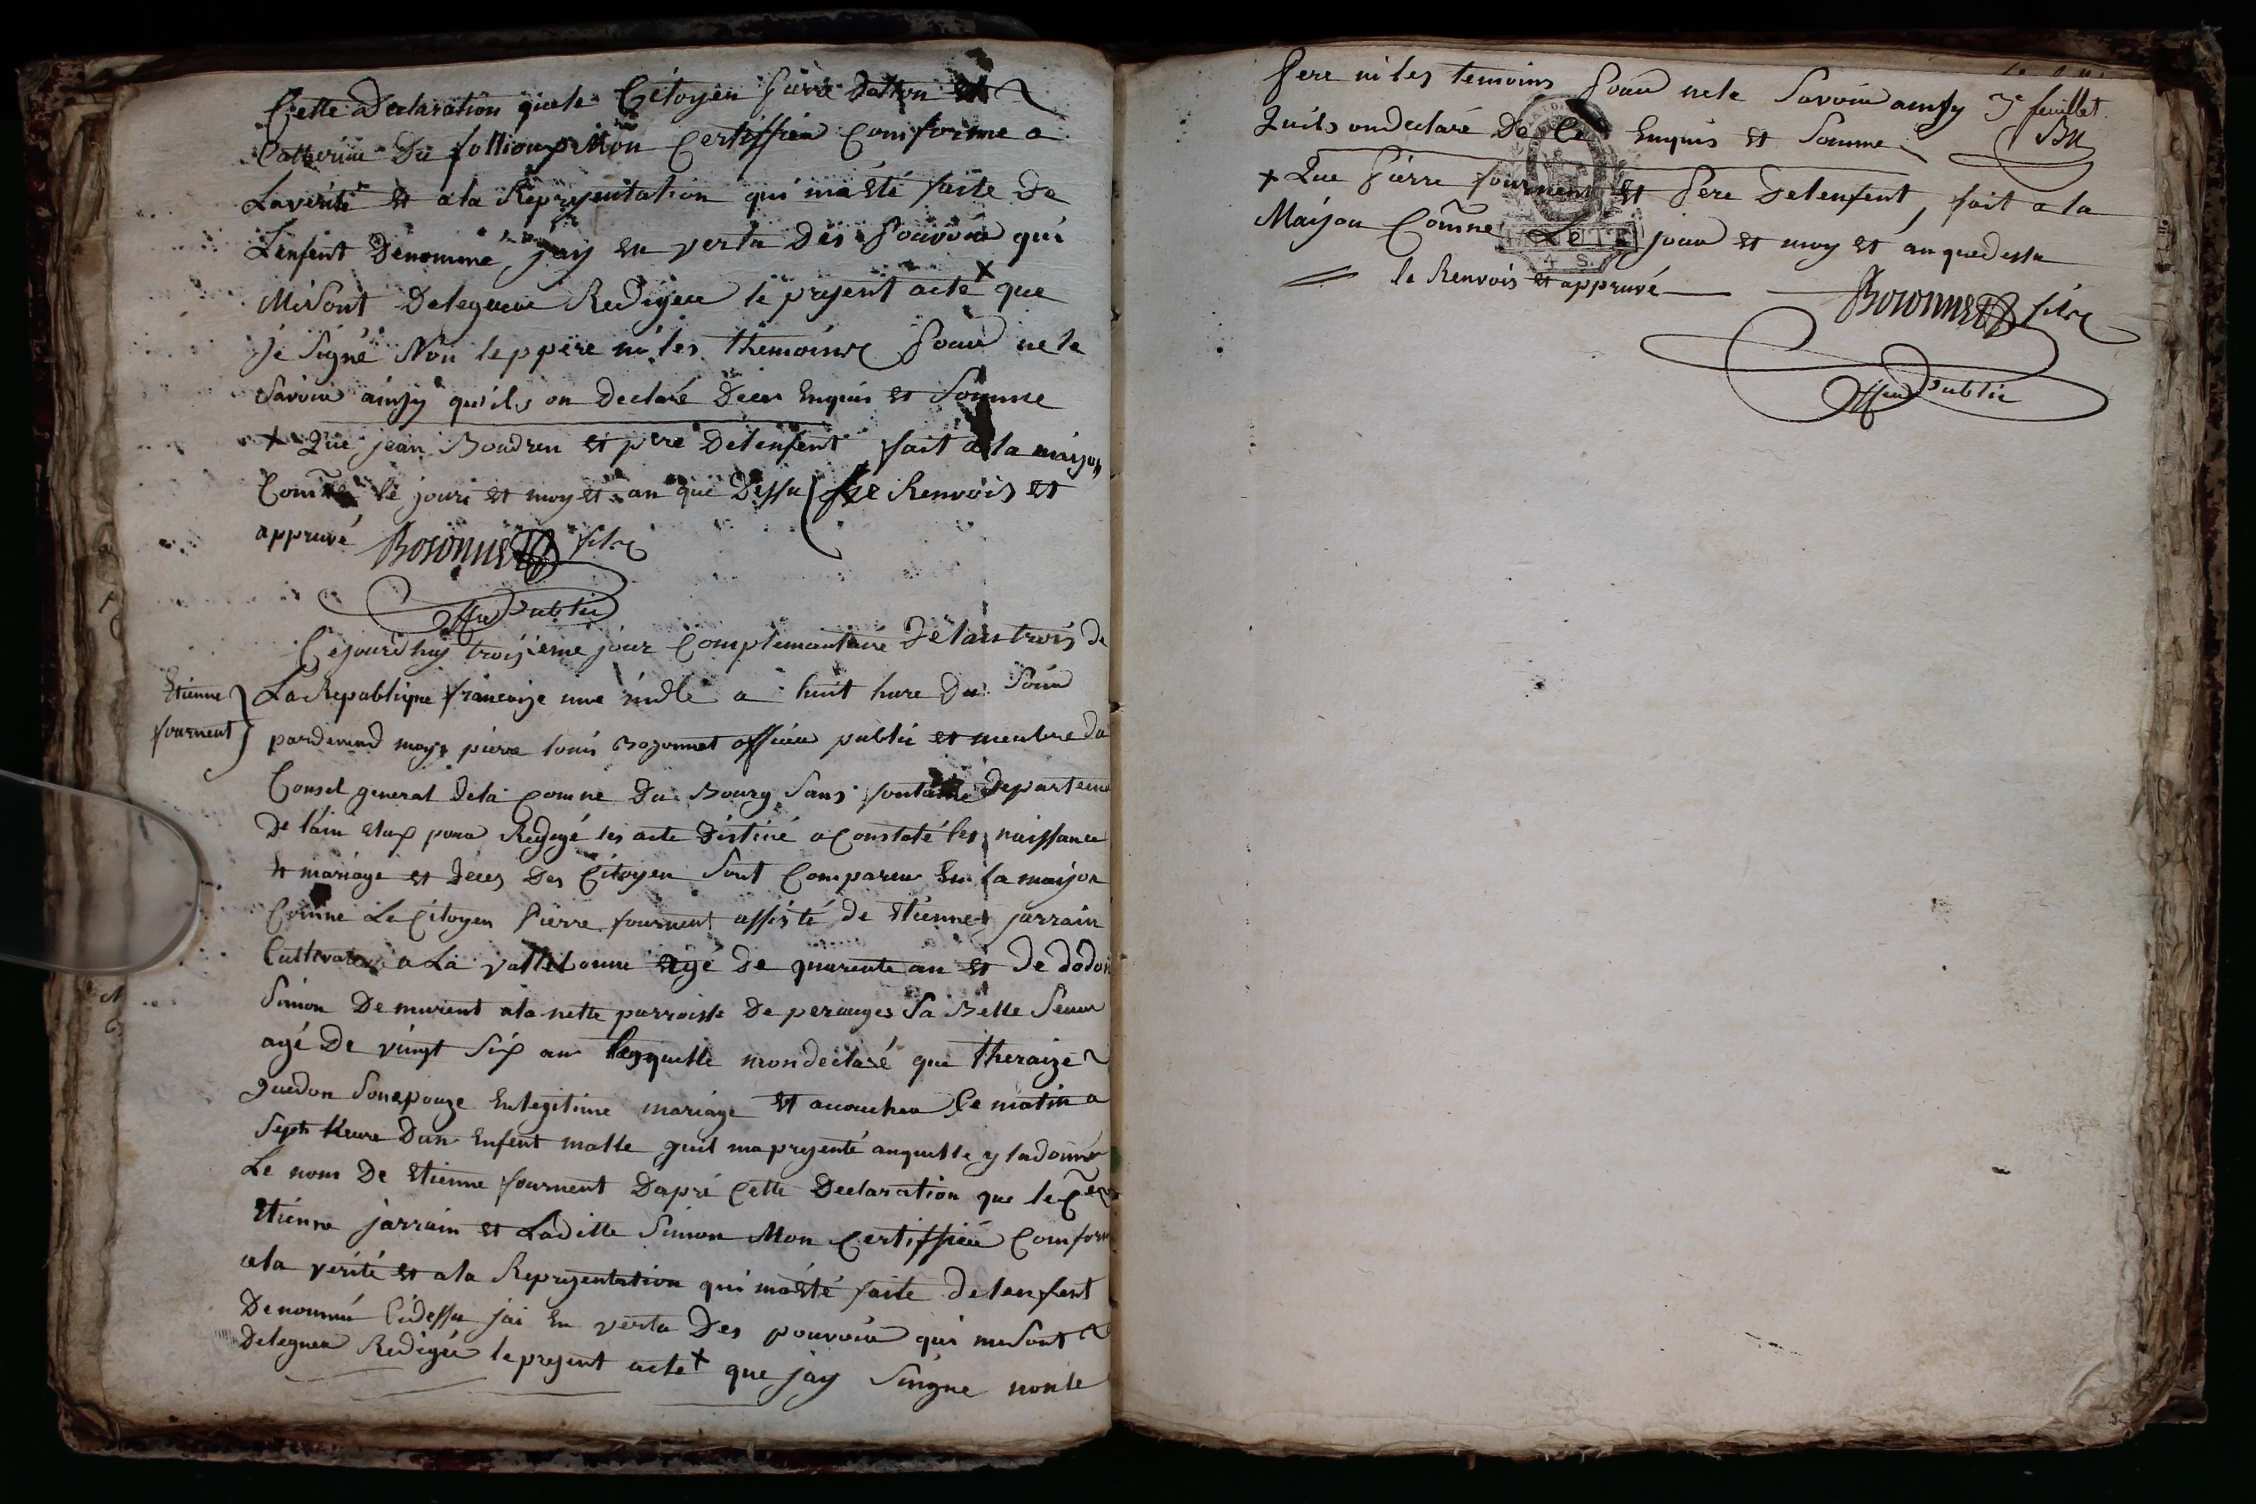 Cette Declaration que le Citoyen pierre datton et
Catherine Du follioupitton Certiffieu Comforme a
La verité et a la Represnetation qui ma eté faite De
L'enfent Denommé jay en vertu Des pouvoir qui
Mi sont Delegueur Redigeu le present acte + que
Je signé Non le ppere ni les themoins pour ne le
Savoir ainsy qu'ils on Declaré De ces Enquis et Somme
+ Que jean Boudren et pere De lenfent fait a la maison
Comne le jour et moy et an que Dessu le Renvois et
appruvé Bosonnet fils
offieu Public
Cejourdhuy troisieme jour Complemantaire De lan trois de
Etienne
fournent
La Republique francoize une indle a huit hure Du Soir
pardevend moy pierre louis Bozonnet officieu public et menbre du
Consel general dela Comne Du Bourg Sans fontaine Departem
De l'ain elus pour Redigé les acte Déstiné a Constaté les naissance
et mariage et deces Des Citoyen Sont Compareu En la mayon
Comne Le Citoyen Pierre fournent assisté de Etienne jarrain
Cultivateur a La vallebonne agé De quarente an et De dodon
Simon Demurent ala nette parroisse De perouges Sa Belle Seuur
agé De vingt Six an lesquelle mon declaré que theraize
guedon Son epouze En legitime mariage et acouchea Ce matin a
Sept heure Dun Enfent malle quil ma presenté auquelle y la donné
Le nom De Etienne fournent Dapré Cette Declaration que le Cen
Etienne jarrain et Laditte Simon Mon Certiffieu Comform
ala verité et ala Represntation qui ma eté faite De lenfent
Denommé Cidessu jai En vertu Des pouvoir qui me sont
Delegueu Redigée le present acte + que jay Singne non le
Pere ni les temoins pour ne le Savoir ainsy 3e feuillet
Quils on declaré De Ce Enquis et Somme
+ Que Pierre fournent et Pere De lenfent, fait a la
Maison Comne Le jour et moy et an que dessu
le Renvois et appruvé
Bosonnet fils
offieu Public